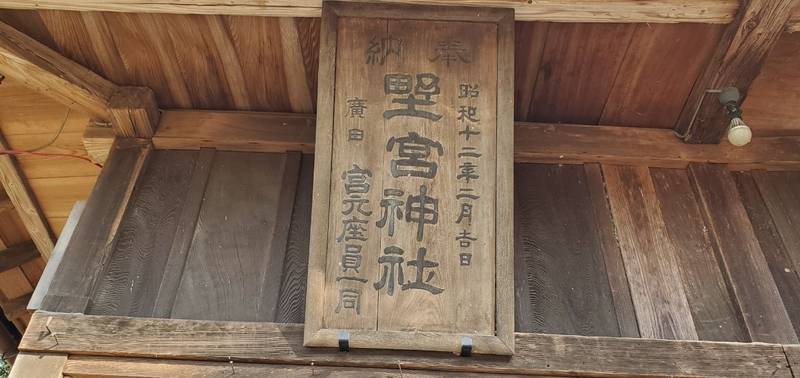 奉納
昭和十二年二月吉日
野宮神社
廣田 宮元座員一同